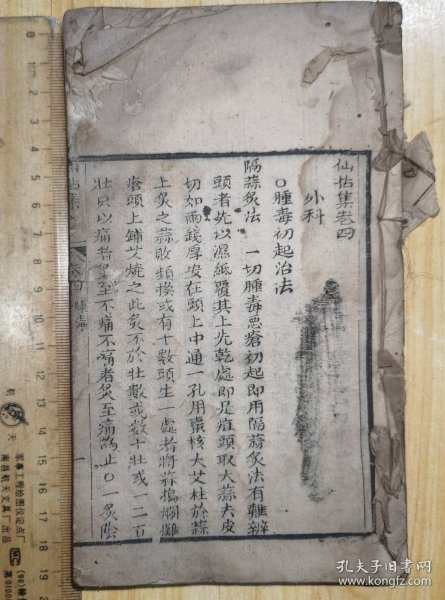 仙拈集卷四
外科
○腫毒初起治法
隔蒜灸法 一切腫毒惡瘡初起即用隔蒜灸法有難辨
頭者先以濕紙覆其上先乾處即是瘡頭取大蒜去皮
切如兩錢厚安在頭上中通一孔用棗核大艾柱於蒜
上灸之蒜敗頻換或有十數頭生一處者將蒜搗爛攤
瘡頭上鋪艾燒之此灸不於壯數或數十壯或一二百
壯只以痛者灸至不痛不痛者灸至痛為止○一灸陰
拈集
卷四 腫毒
航天
南昌航天文具厂出品
MC
孔夫子旧书网
www.kongfz.com